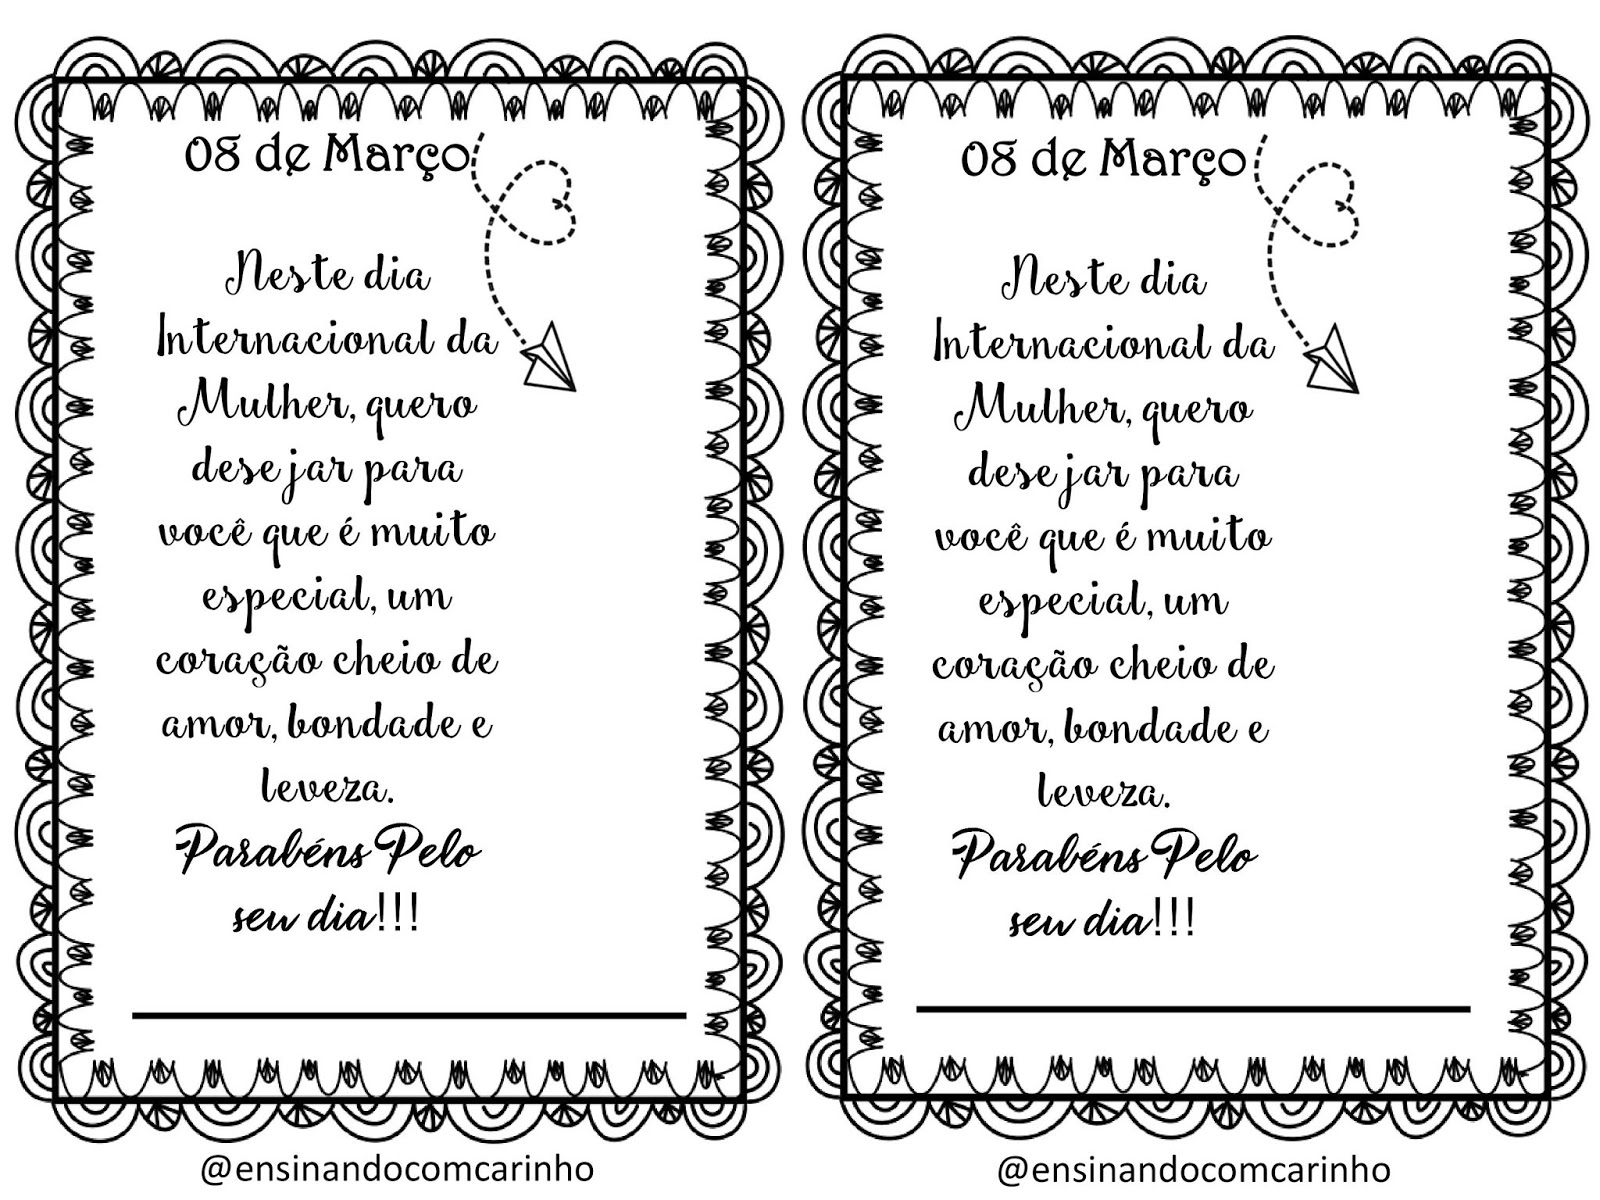 08 de Março
Neste dia
Internacional da
Mulher, quero
desejar para
você que é muito
especial, um
coração cheio de
amor, bondade e
leveza.
Parabéns Pelo
seu dia!!!
@ensinandocomcarinho
08 de Março
Neste dia
Internacional da
Mulher, quero
desejar para
você que é muito
especial, um
coração cheio de
amor, bondade e
leveza.
Parabéns Pelo
seu dia!!!
@ensinandocomcarinho